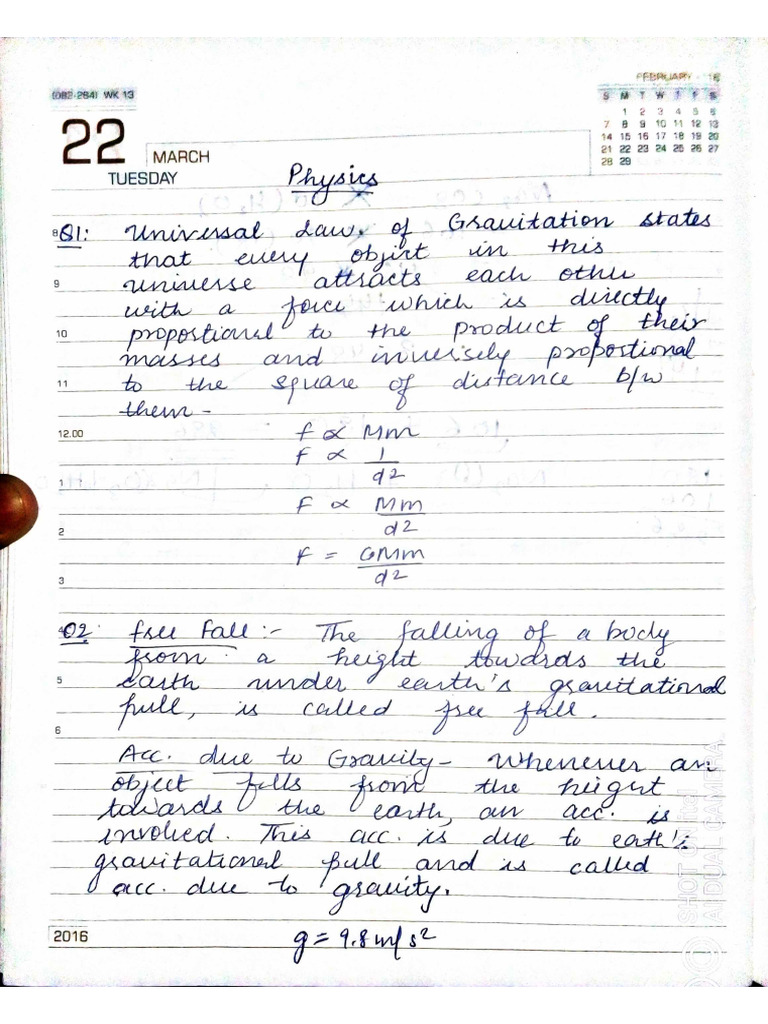 (082-284) WK 13
FEBRUARY - 16
S M T W T F S
1 2 3 4 5 6
7 8 9 10 11 12 13
14 15 16 17 18 19 20
21 22 23 24 25 26 27
28 29
22 MARCH
TUESDAY
Physics
8 Q1: Universal Law of Gravitation states
that every object in this
9 universe attracts each other
with a force which is directly
10 proportional to the product of their
masses and inversely proportional
11 to the square of distance b/w
them -
12.00 F ∝ Mm
F ∝ 1/d2
1
F ∝ Mm/d2
2
F = GMm/d2
3
4 Q2: Free Fall :- The falling of a body
from a height towards the
5 earth under earth's gravitational
pull, is called free fall.
6
Acc. due to Gravity - Whenever an
object falls from the height
towards the earth, an acc. is
involved. This acc. is due to earth's
gravitational pull and is called
acc. due to gravity.
2016 g = 9.8 m/s2
SHOT
AI DUAL CAMERA